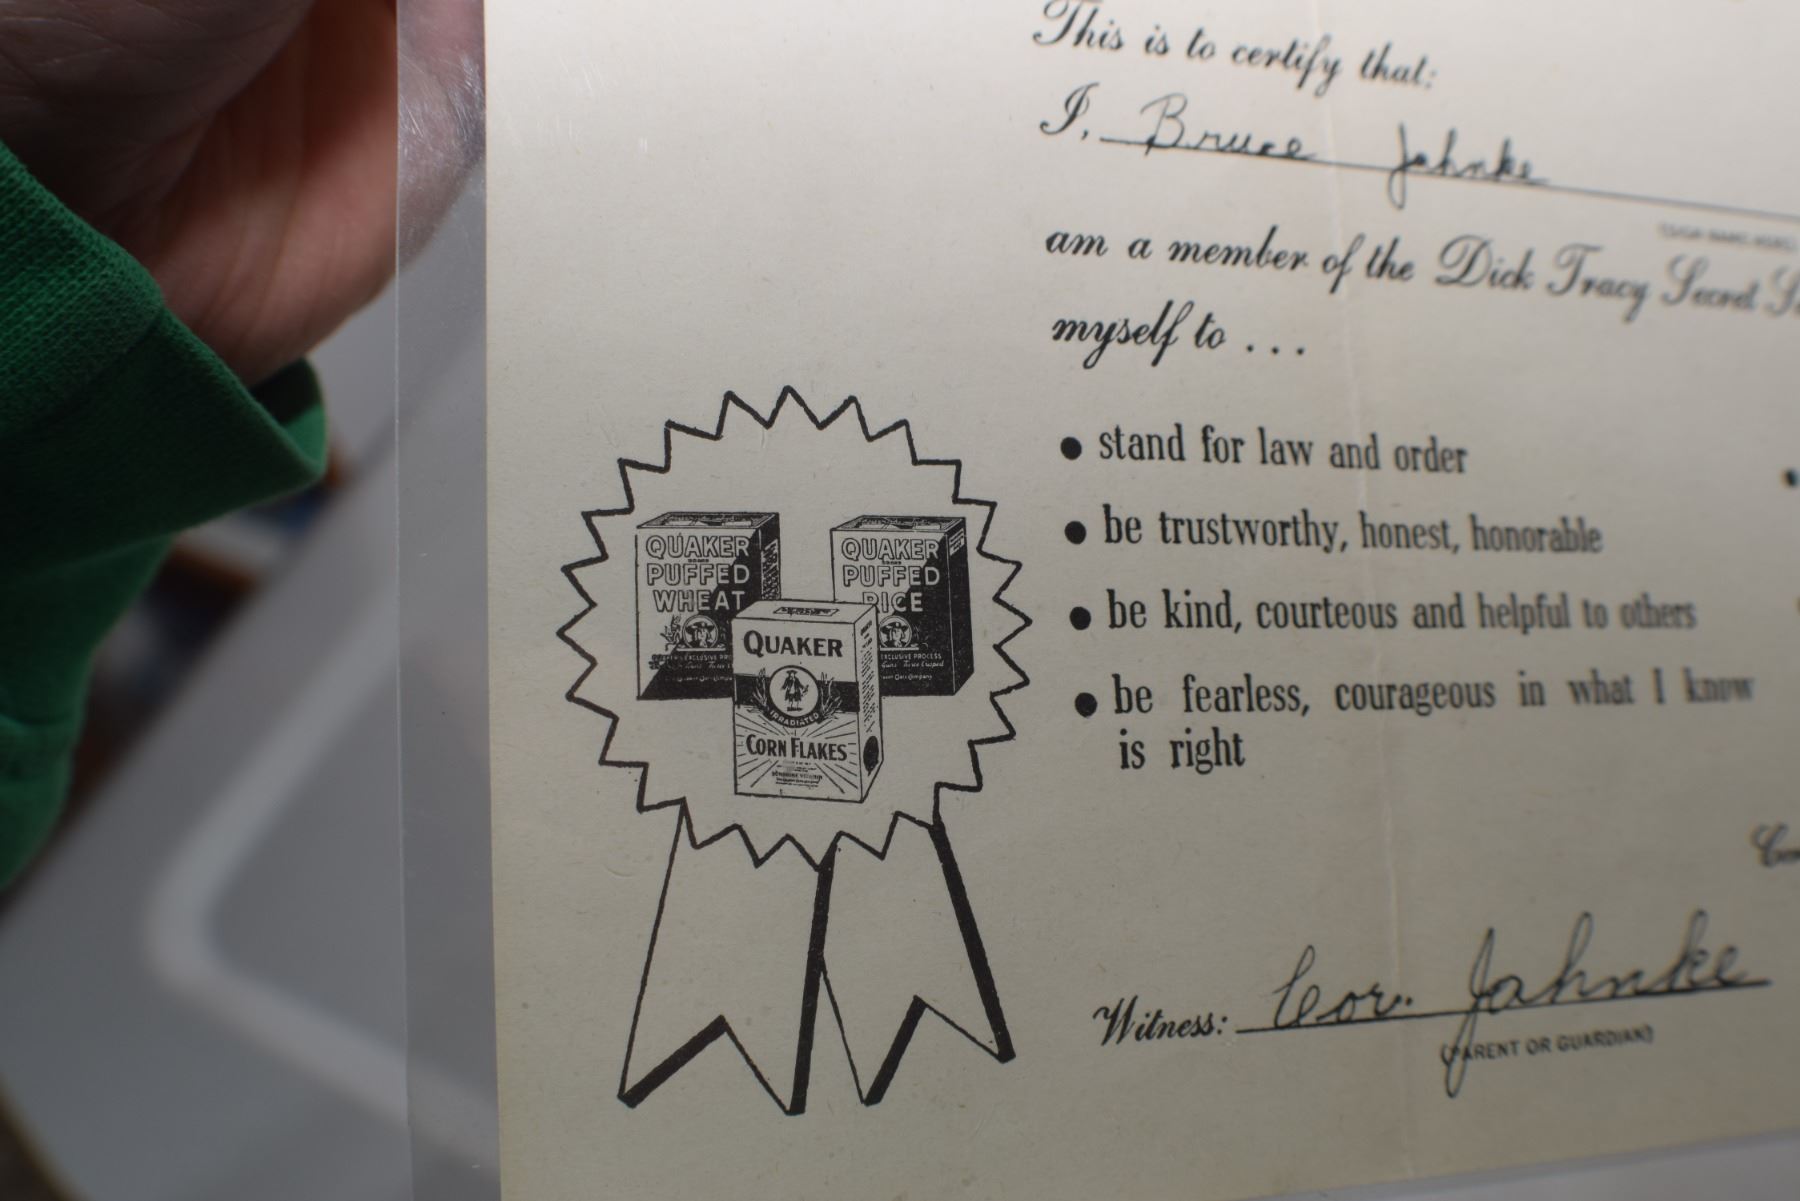 This is to certify that:
I, Bruce Jahnke
am a member of the Dick Tracy Secret
myself to ...
• stand for law and order
• be trustworthy, honest, honorable
• be kind, courteous and helpful to others
• be fearless, courageous in what I know
is right
QUAKER
PUFFED
WHEAT
QUAKER
PUFFED
RICE
EXCLUSIVE PROCESS
QUAKER
IRRADIATED
CORN FLAKES
Witness: Cor. Jahnke
(PARENT OR GUARDIAN)